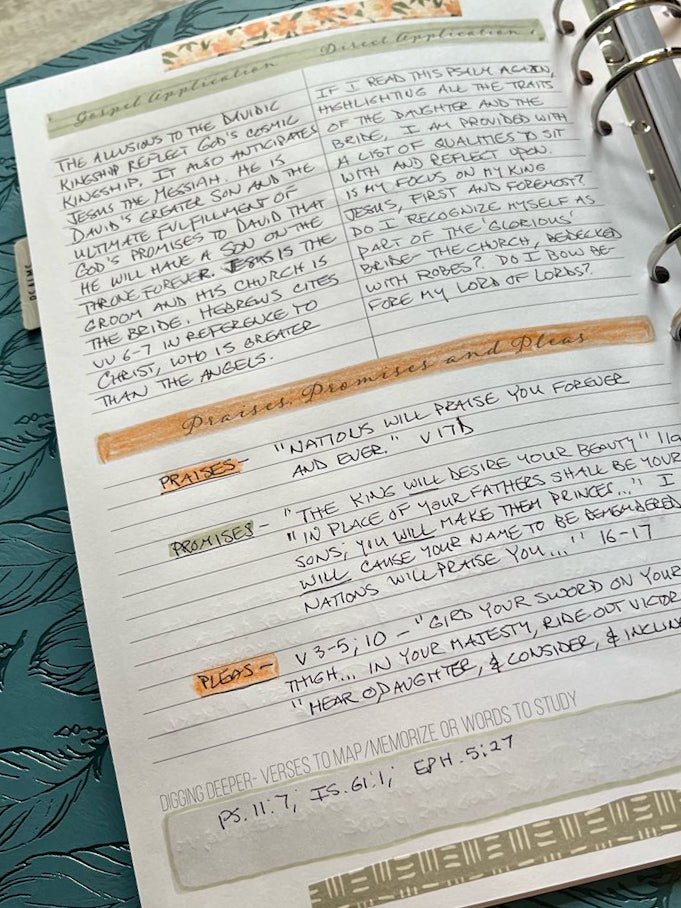 Gospel Application
THE ALLUSIONS TO THE DAVIDIC
KINGSHIP REFLECT GOD'S COSMIC
KINGSHIP. IT ALSO ANTICIPATES
JESUS THE MESSIAH. HE IS
DAVID'S GREATER SON AND THE
ULTIMATE FULFILLMENT OF
GOD'S PROMISES TO DAVID THAT
HE WILL HAVE A SON ON THE
THRONE FOREVER. JESUS IS THE
GROOM AND HIS CHURCH IS
THE BRIDE. HEBREWS CITES
VV 6-7 IN REFERENCE TO
CHRIST, WHO IS GREATER
THAN THE ANGELS.
Direct Application
IF I READ THIS PSALM AGAIN,
HIGHLIGHTING ALL THE TRAITS
OF THE DAUGHTER AND THE
BRIDE, I AM PROVIDED WITH
A LIST OF QUALITIES TO SIT
WITH AND REFLECT UPON.
IS MY FOCUS ON MY KING
JESUS, FIRST AND FOREMOST?
DO I RECOGNIZE MYSELF AS
PART OF THE 'GLORIOUS'
BRIDE - THE CHURCH, BEDECKED
WITH ROBES? DO I BOW BE-
FORE MY LORD OF LORDS?
Praises, Promises and Pleas
PRAISES - "NATIONS WILL PRAISE YOU FOREVER
AND EVER." V 17b
PROMISES - "THE KING WILL DESIRE YOUR BEAUTY" 11a
"IN PLACE OF YOUR FATHERS SHALL BE YOUR
SONS; YOU WILL MAKE THEM PRINCES..." I
WILL CAUSE YOUR NAME TO BE REMEMBERED
NATIONS WILL PRAISE YOU..." 16-17
PLEAS - V 3-5; 10 - "GIRD YOUR SWORD ON YOUR
THIGH... IN YOUR MAJESTY, RIDE OUT VICTOR
"HEAR O DAUGHTER, & CONSIDER, & INCLIN
DIGGING DEEPER- VERSES TO MAP/MEMORIZE OR WORDS TO STUDY
PS. 11:7; IS. 61:1; EPH. 5:27